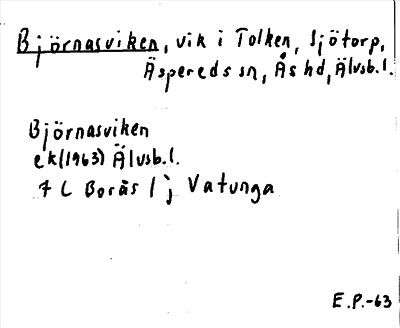 Björnasviken, vik i Tolken, Sjötorp,
Äspereds sn, Ås hd, Älvsb. l.
Björnasviken
ek (1963) Älvsb. l.
7 C Borås 1 j Vatunga
E.P.-63